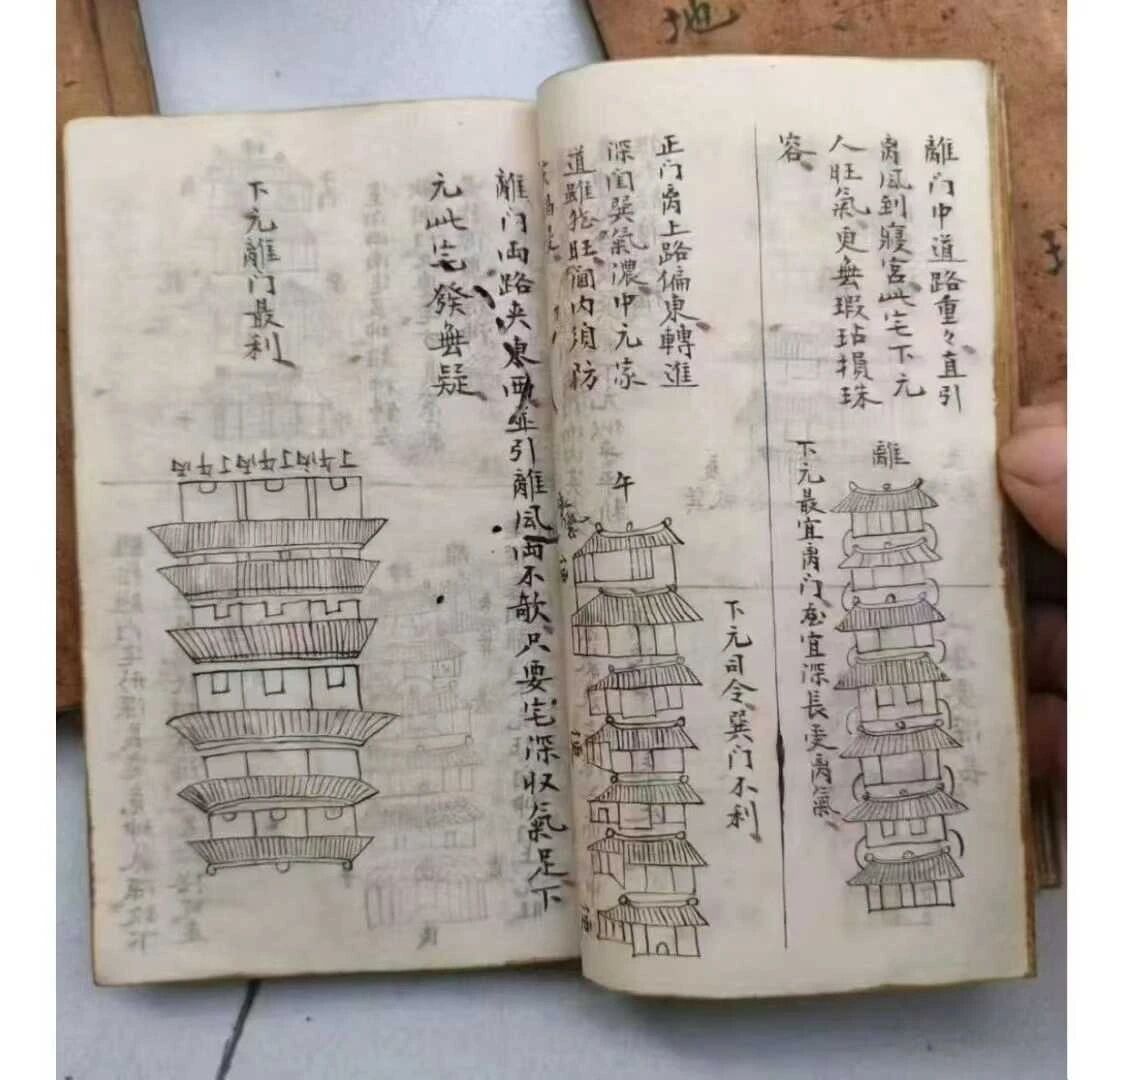 離门中道路重々直引
离風到寢宮此宅下元
人旺氣更無瑕玷損珠
容
離
下元最宜离门宅宜深長受离氣
正门离上路偏東轉進
深闺巽氣濃中元家
道雖旺個内須防
午
下元司令巽门不利
離门兩路夾東西並引離風兩不欹只要宅深収氣足下
元此宅發無疑
下元離门最利
地